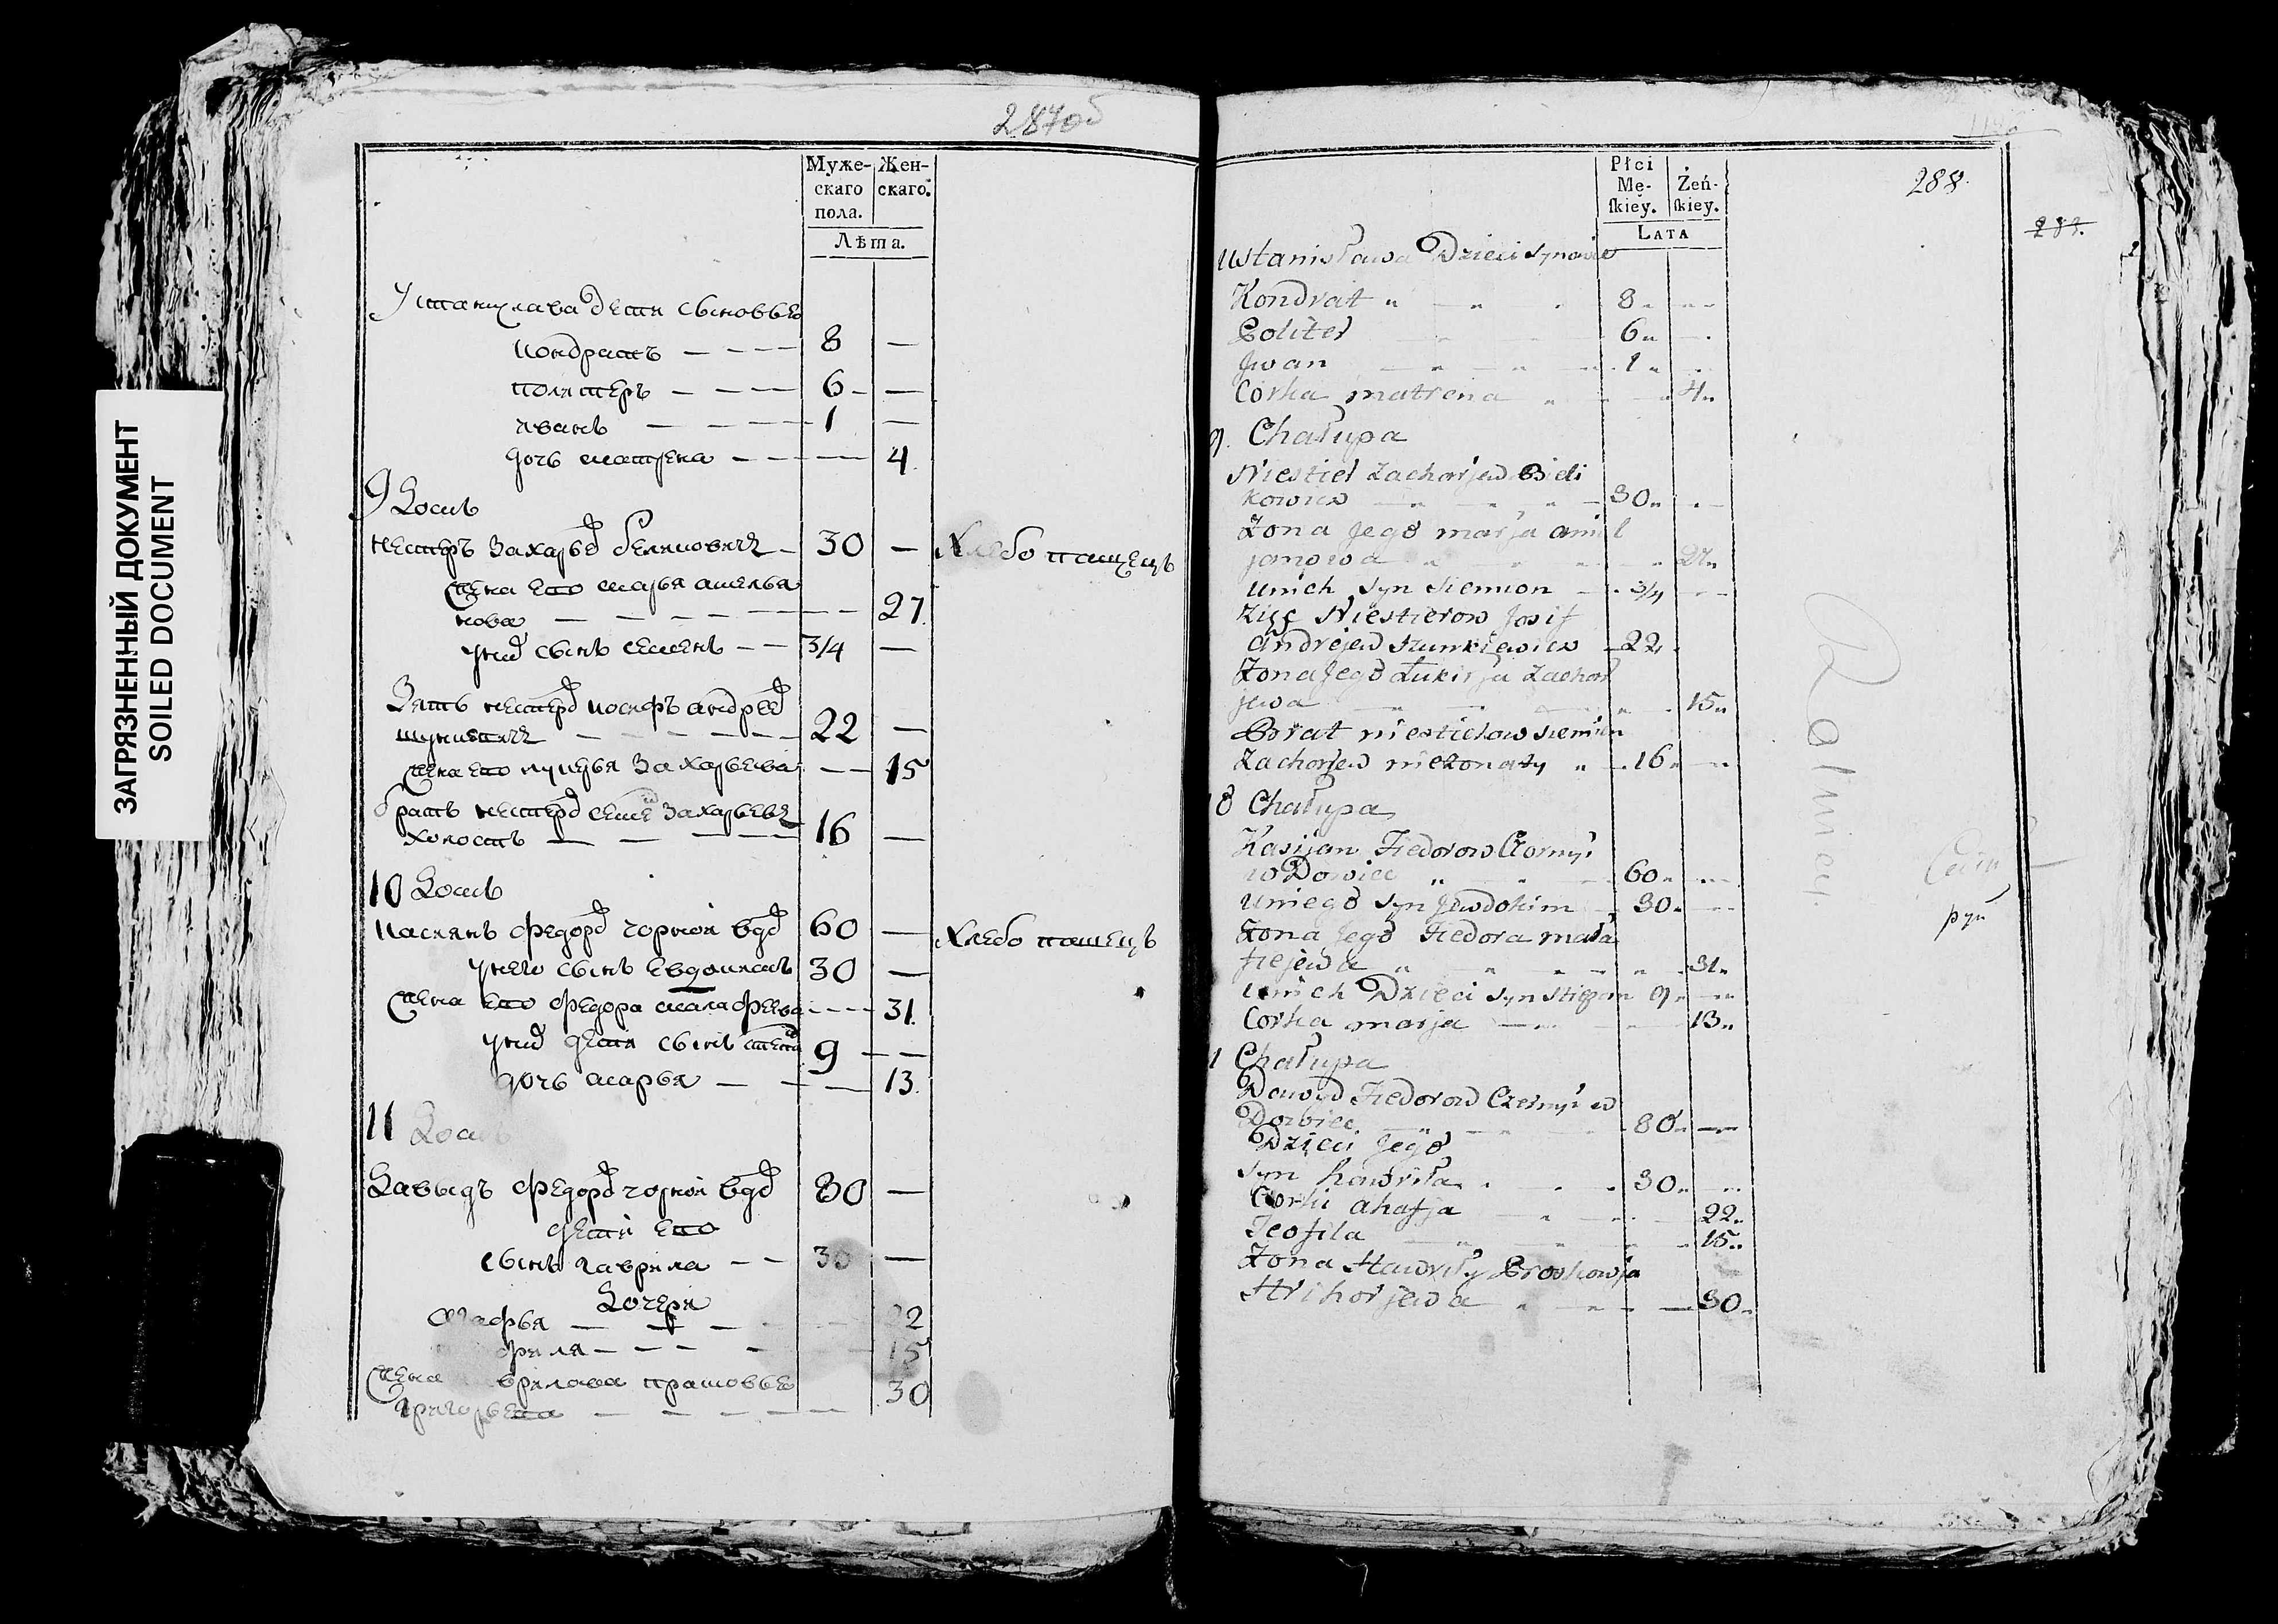 ЗАГРЯЗНЕННЫЙ ДОКУМЕНТ
SOILED DOCUMENT
287об
Муже-
скаго
пола.
Жен-
скаго.
Лѣта.
У станислава дети сыновье
кондратъ 8 —
политеръ 6 —
иванъ 1 —
дочь матрена — 4
9 Домъ
нестеръ Захарьев беликовичъ 30 — Хлебо пашецъ
жена его марья амелья
нова — 27
у них сынъ семенъ 3/4 —
Зять нестеров иосифъ андреев
22 —
жена его лукерья Захарьева — 15
братъ нестеров семен Захарьевъ
холостъ 16 —
10 Домъ
касиянъ федоров чорной вдов 60 — Хлебо пашецъ
у него сынъ евдокимъ 30 —
жена его федора малафеева — 31
у них дети сынъ степан 9 —
дочь марья — 13
11 Домъ
Давыдъ федоров чорной вдов 80 —
дети его
сынъ гаврила 30 —
Дочери
агафья — 22
филя — 15
жена врилова прасковье
григорьева — 30
Płci
Mę-
ſkiey.
Żeń-
ſkiey.
LATA
288
283.
U Stanisława Dzieci Synowie
Kondrat 8
Politer 6
Jwan 1
Corka matrena 4
9. Chałupa
Niestier Zacharjew Bieli
kowicz 30
Żona Jego marja amil
janowa 27
Unich Syn Siemion 3/4
Zięć Niestierow Josif
Andrejew Szunkiewicz 22
Żona Jego Łukirja Zachar
jewa 15
Brat niestierow siemion
Zacharjew nieżonaty 16
0 Chałupa
Kasijan Fiedorow Czorny
wDowiec 60
Uniego Syn Jewdokim 30
Żona Jego Fiedora mała
fiejewa 31
Unich Dzieci Syn Stiepan 9
Corka marja 13
1 Chałupa
Dawyd Fiedorow Czerny w
Dowiec 80
Dzieci Jego
Syn hawriła 30
Corki ahafja 22
Teofila 15
Żona Hawriły Proskowja
Hrihorjewa 30